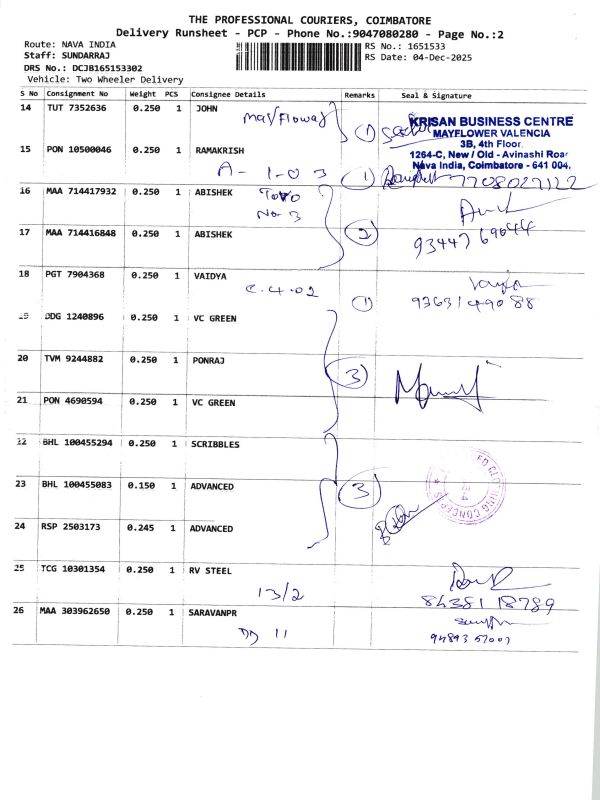 THE PROFESSIONAL COURIERS, COIMBATORE
Delivery Runsheet - PCP - Phone No.:9047080280 - Page No.:2
Route: NAVA INDIA
Staff: SUNDARRAJ
DRS No.: DCJB165153302
Vehicle: Two Wheeler Delivery
RS No.: 1651533
RS Date: 04-Dec-2025
S No Consignment No Weight PCS Consignee Details Remarks Seal & Signature
14 TUT 7352636 0.250 1 JOHN
Mayflower 1
KRISAN BUSINESS CENTRE
MAYFLOWER VALENCIA
3B, 4th Floor
1264-C, New / Old - Avinashi Road
Nava India, Coimbatore - 641 004.
15 PON 10500046 0.250 1 RAMAKRISH
A-103 1 7708027122
16 MAA 714417932 0.250 1 ABISHEK
No. 3
17 MAA 714416848 0.250 1 ABISHEK 2
93447 69044
18 PGT 7904368 0.250 1 VAIDYA
C.4.02 1 93631 49088
19 DDG 1240896 0.250 1 VC GREEN
20 TVM 9244882 0.250 1 PONRAJ 3
21 PON 4690594 0.250 1 VC GREEN
22 BHL 100455294 0.250 1 SCRIBBLES
23 BHL 100455083 0.150 1 ADVANCED 3
24 RSP 2503173 0.245 1 ADVANCED
25 TCG 10301354 0.250 1 RV STEEL
13/2 84381 18789
26 MAA 303962650 0.250 1 SARAVANPR
DD 11